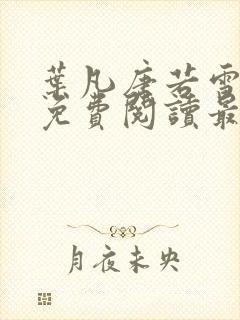 葉凡唐若雪
免費閱讀最
月夜未央